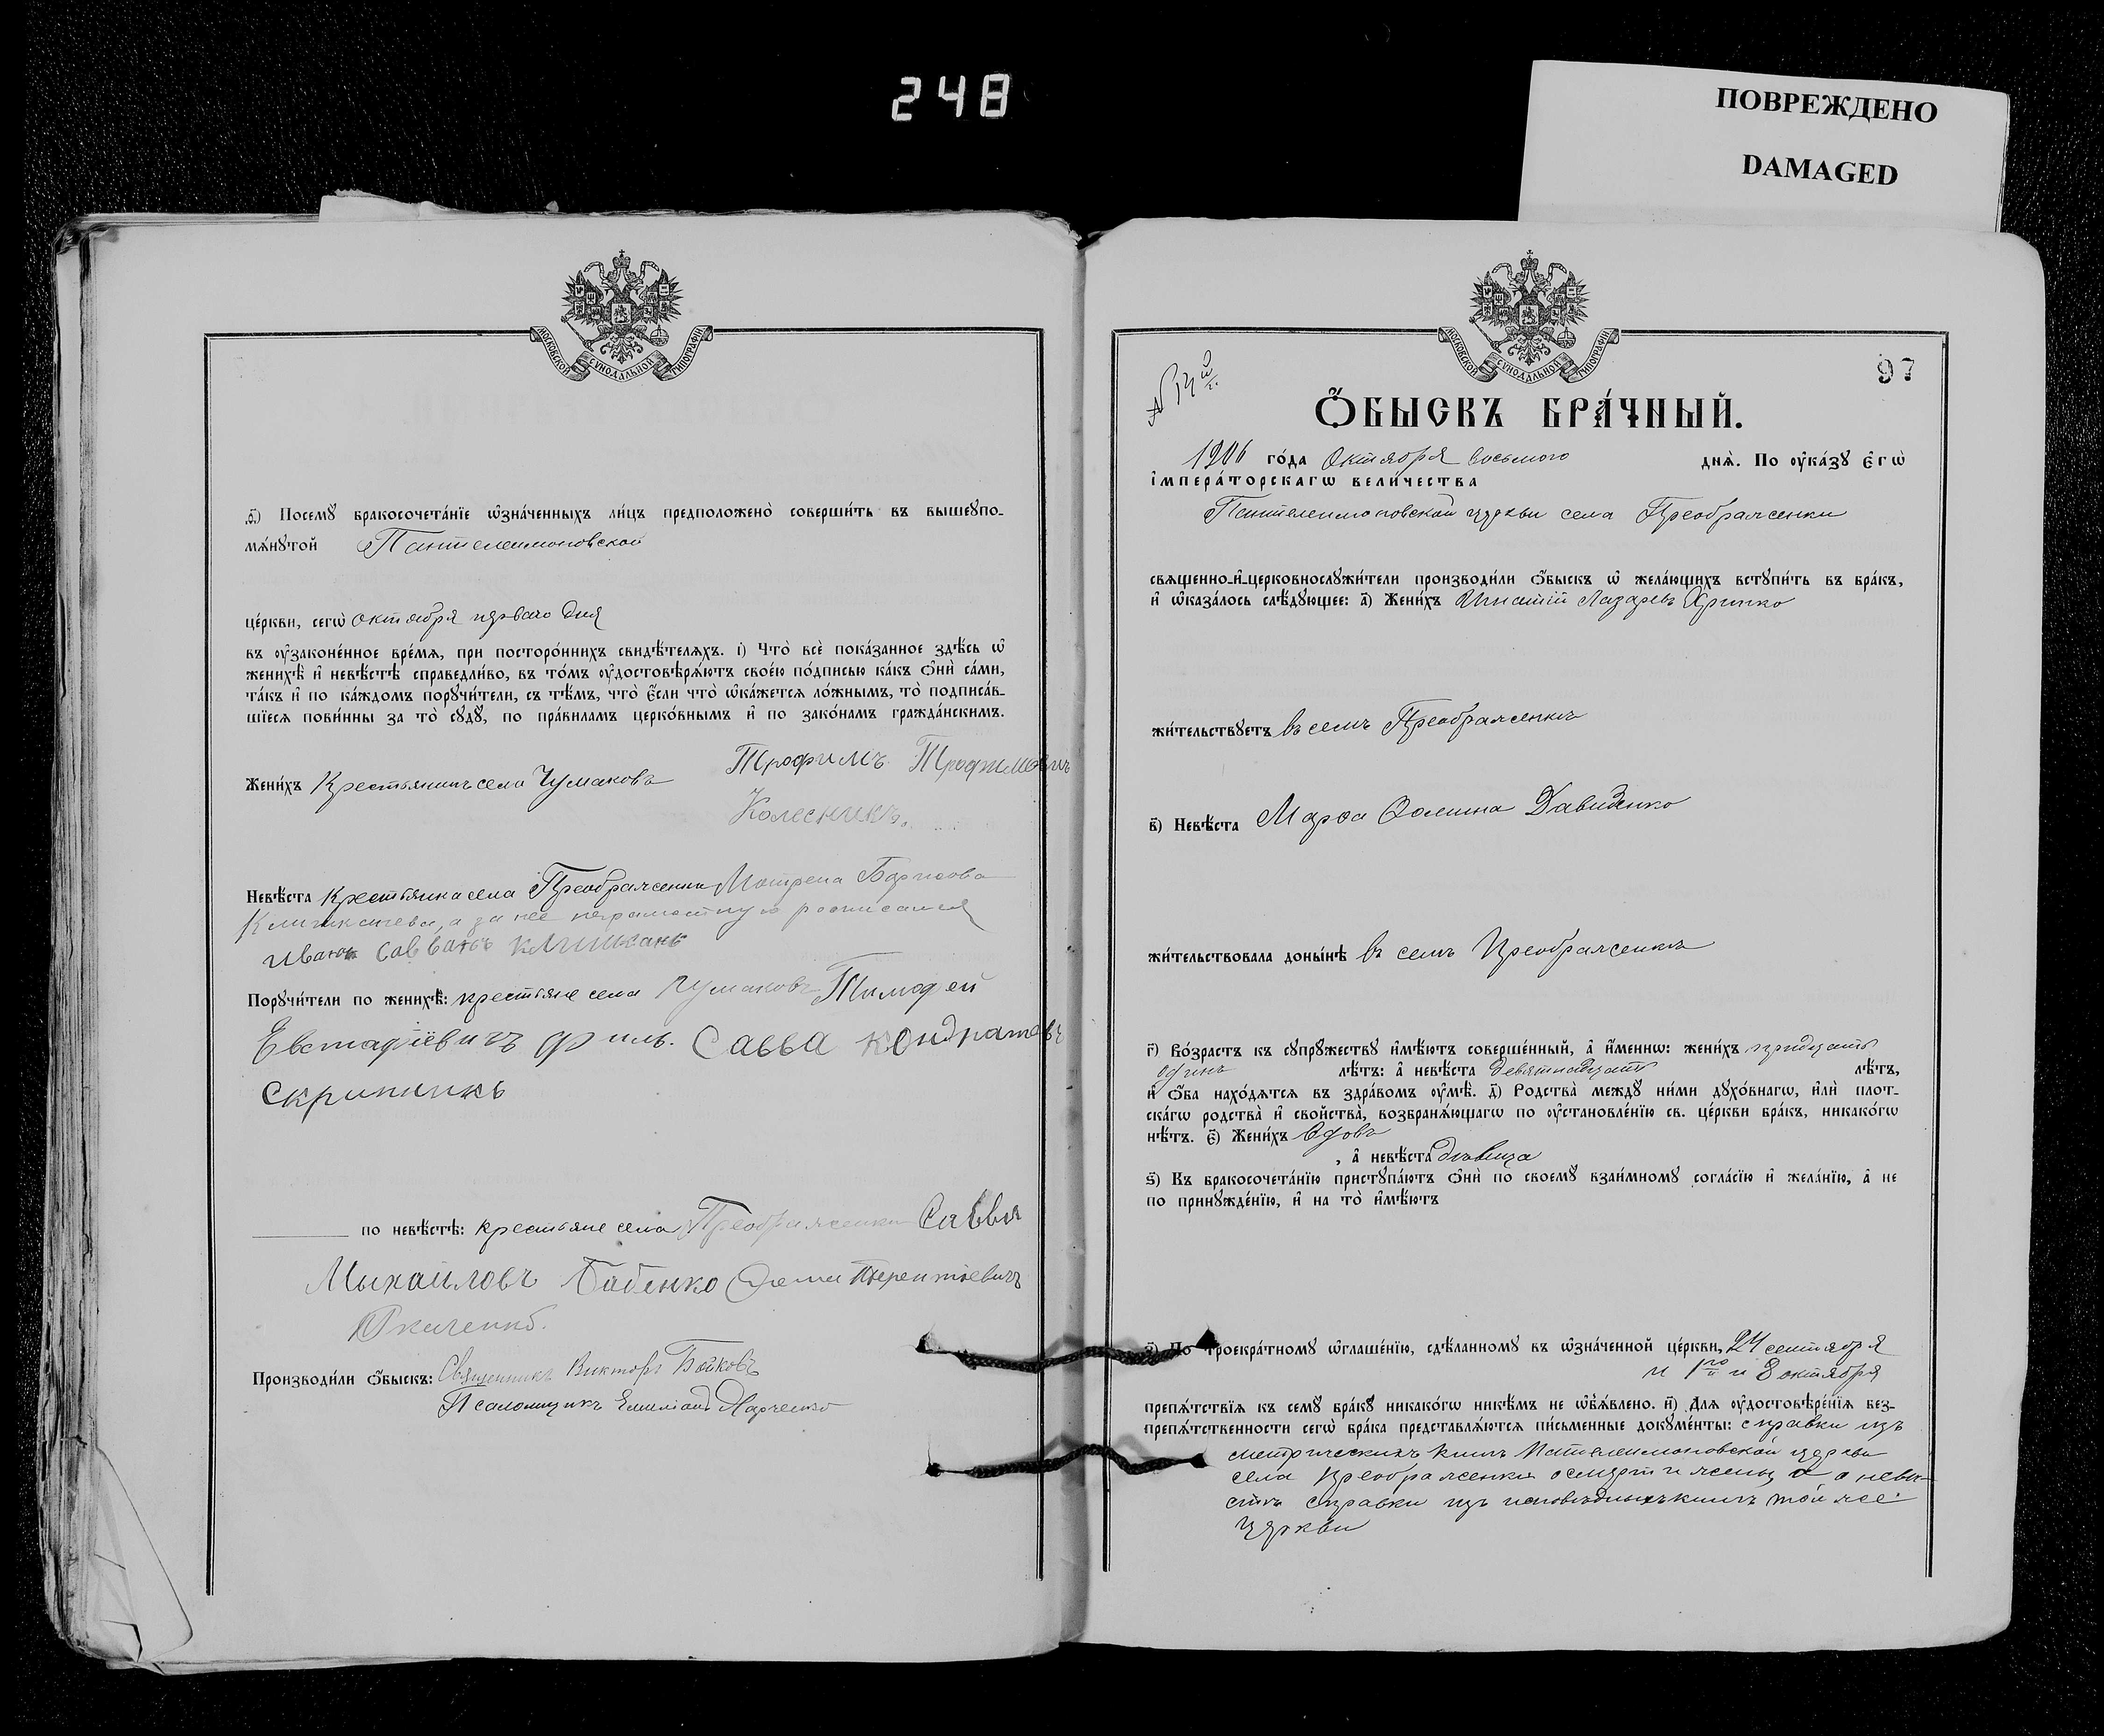 248
ПОВРЕЖДЕНО
DAMAGED
МОСКОВСКОЙ СѴНОДАЛЬНОЙ ТИПОГРАФІИ
Ѳ҃) Посемꙋ бракосочета́нїе ѡ҆зна́ченныхъ ли́цъ предположено̀ соверши́ть въ вышеꙋпо-
мѧ́нꙋтой Пантелеимоновской
це́ркви, сегѡ̀ октября перваго дня
въ ᲂу҆законе́нное вре́мѧ, при посторо́ннихъ свидѣ́телѧхъ. і҃) Что̀ всѐ пока́занное здѣ́сь ѡ҆
женихѣ̀ и҆ невѣ́стѣ справедли́во, въ то́мъ ᲂу҆достовѣрѧ́ютъ свое́ю по́дписью ка́къ ѻ҆нѝ са́ми,
та́къ и҆ по ка́ждомъ порꙋчи́тели, съ тѣ́мъ, что̀ є҆́сли что̀ ѡ҆ка́жетсѧ ло́жнымъ, то̀ подписа́в-
шїесѧ пови́нны за то̀ сꙋдꙋ̀, по пра́виламъ церко́внымъ и҆ по зако́намъ гражда́нскимъ.
Жени́хъ Крестьянинъ села Чумаковъ Трофимъ Трофимовичъ
Колесникъ.
Невѣ́ста Крестьянка села Преображенки Мотрена Борисова
а за нее неграмотную росписался
Иванъ Саввинъ Клишкань
Порꙋчи́тели по женихѣ̀: крестьяне села Чумаковъ Тимофей
Евстафіевичъ Филь. Савва Кондратовъ
Скрипникъ
по невѣ́стѣ: крестьяне села Преображенки Савва
Мыхайловъ Бабенко Терентіевичъ
Ткаченко.
Производи́ли ѻ҆́быскъ: Священникъ Викторъ Бойковъ
Псаломщикъ Емиліанъ Марченко
МОСКОВСКОЙ СѴНОДАЛЬНОЙ ТИПОГРАФІИ
97
Ѻ҆́БЫСКЪ БРА́ЧНЫЙ.
1906 го́да Октября восьмого днѧ̀. По ᲂу҆ка́зꙋ є҆гѡ̀
і҆мпера́торскагѡ вели́чества
Пантелеимоновской церкви села Преображенки
свѧщенно-и҆-церковнослꙋжи́тели производи́ли ѻ҆́быскъ ѡ҆ жела́ющихъ встꙋпи́ть въ бра́къ,
и҆ ѡ҆каза́лось слѣ́дꙋющее: а҃) Жени́хъ Игнатій Лазаревъ Хрипко
жи́тельствꙋетъ въ селѣ Преображенкѣ
в҃) Невѣ́ста Марѳа Ѳомина Давиденко
жи́тельствовала доны́нѣ въ селѣ Преображенкѣ
г҃) Во́зрастъ къ сꙋпрꙋ́жествꙋ и҆мѣ́ютъ соверше́нный, а҆ и҆́меннѡ: жени́хъ тридцать
одинъ лѣ́тъ: а҆ невѣ́ста девятнадцать лѣ́тъ,
и҆ ѻ҆́ба нахо́дѧтсѧ въ здра́вомъ ᲂу҆мѣ̀. д҃) Родства̀ междꙋ̀ ни́ми дꙋхо́внагѡ, и҆лѝ плот-
ска́гѡ родства̀ и҆ свойства̀, возбранѧ́ющагѡ по ᲂу҆становле́нїю св. це́ркви бра́къ, никако́гѡ
нѣ́тъ. є҃) Жени́хъ вдовъ
, а҆ невѣ́ста дѣвица
ѕ҃) Къ бракосочета́нїю пристꙋпа́ютъ ѻ҆нѝ по своемꙋ̀ взаи́мномꙋ согла́сїю и҆ жела́нїю, а҆ не
по принꙋжде́нїю, и҆ на то̀ и҆мѣ́ютъ
з҃) По троекра́тномꙋ ѡ҆глаше́нїю, сдѣ́ланномꙋ въ ѡ҆зна́ченной це́ркви, 24 сентября
и 1го и 8 октября
препѧ́тствїѧ къ семꙋ̀ бра́кꙋ никако́гѡ никѣ́мъ не ѡ҆б̾ѧ́влено. и҃) Длѧ ᲂу҆достовѣре́нїѧ без-
препѧ́тственности сегѡ̀ бра́ка представлѧ́ютсѧ пи́сьменные докꙋме́нты: справки изъ
метрическихъ книгъ Пантелеимоновской церкви
села Преображенки о смерти жены, а о невѣ-
стѣ справки изъ исповѣдныхъ книгъ той же
церкви